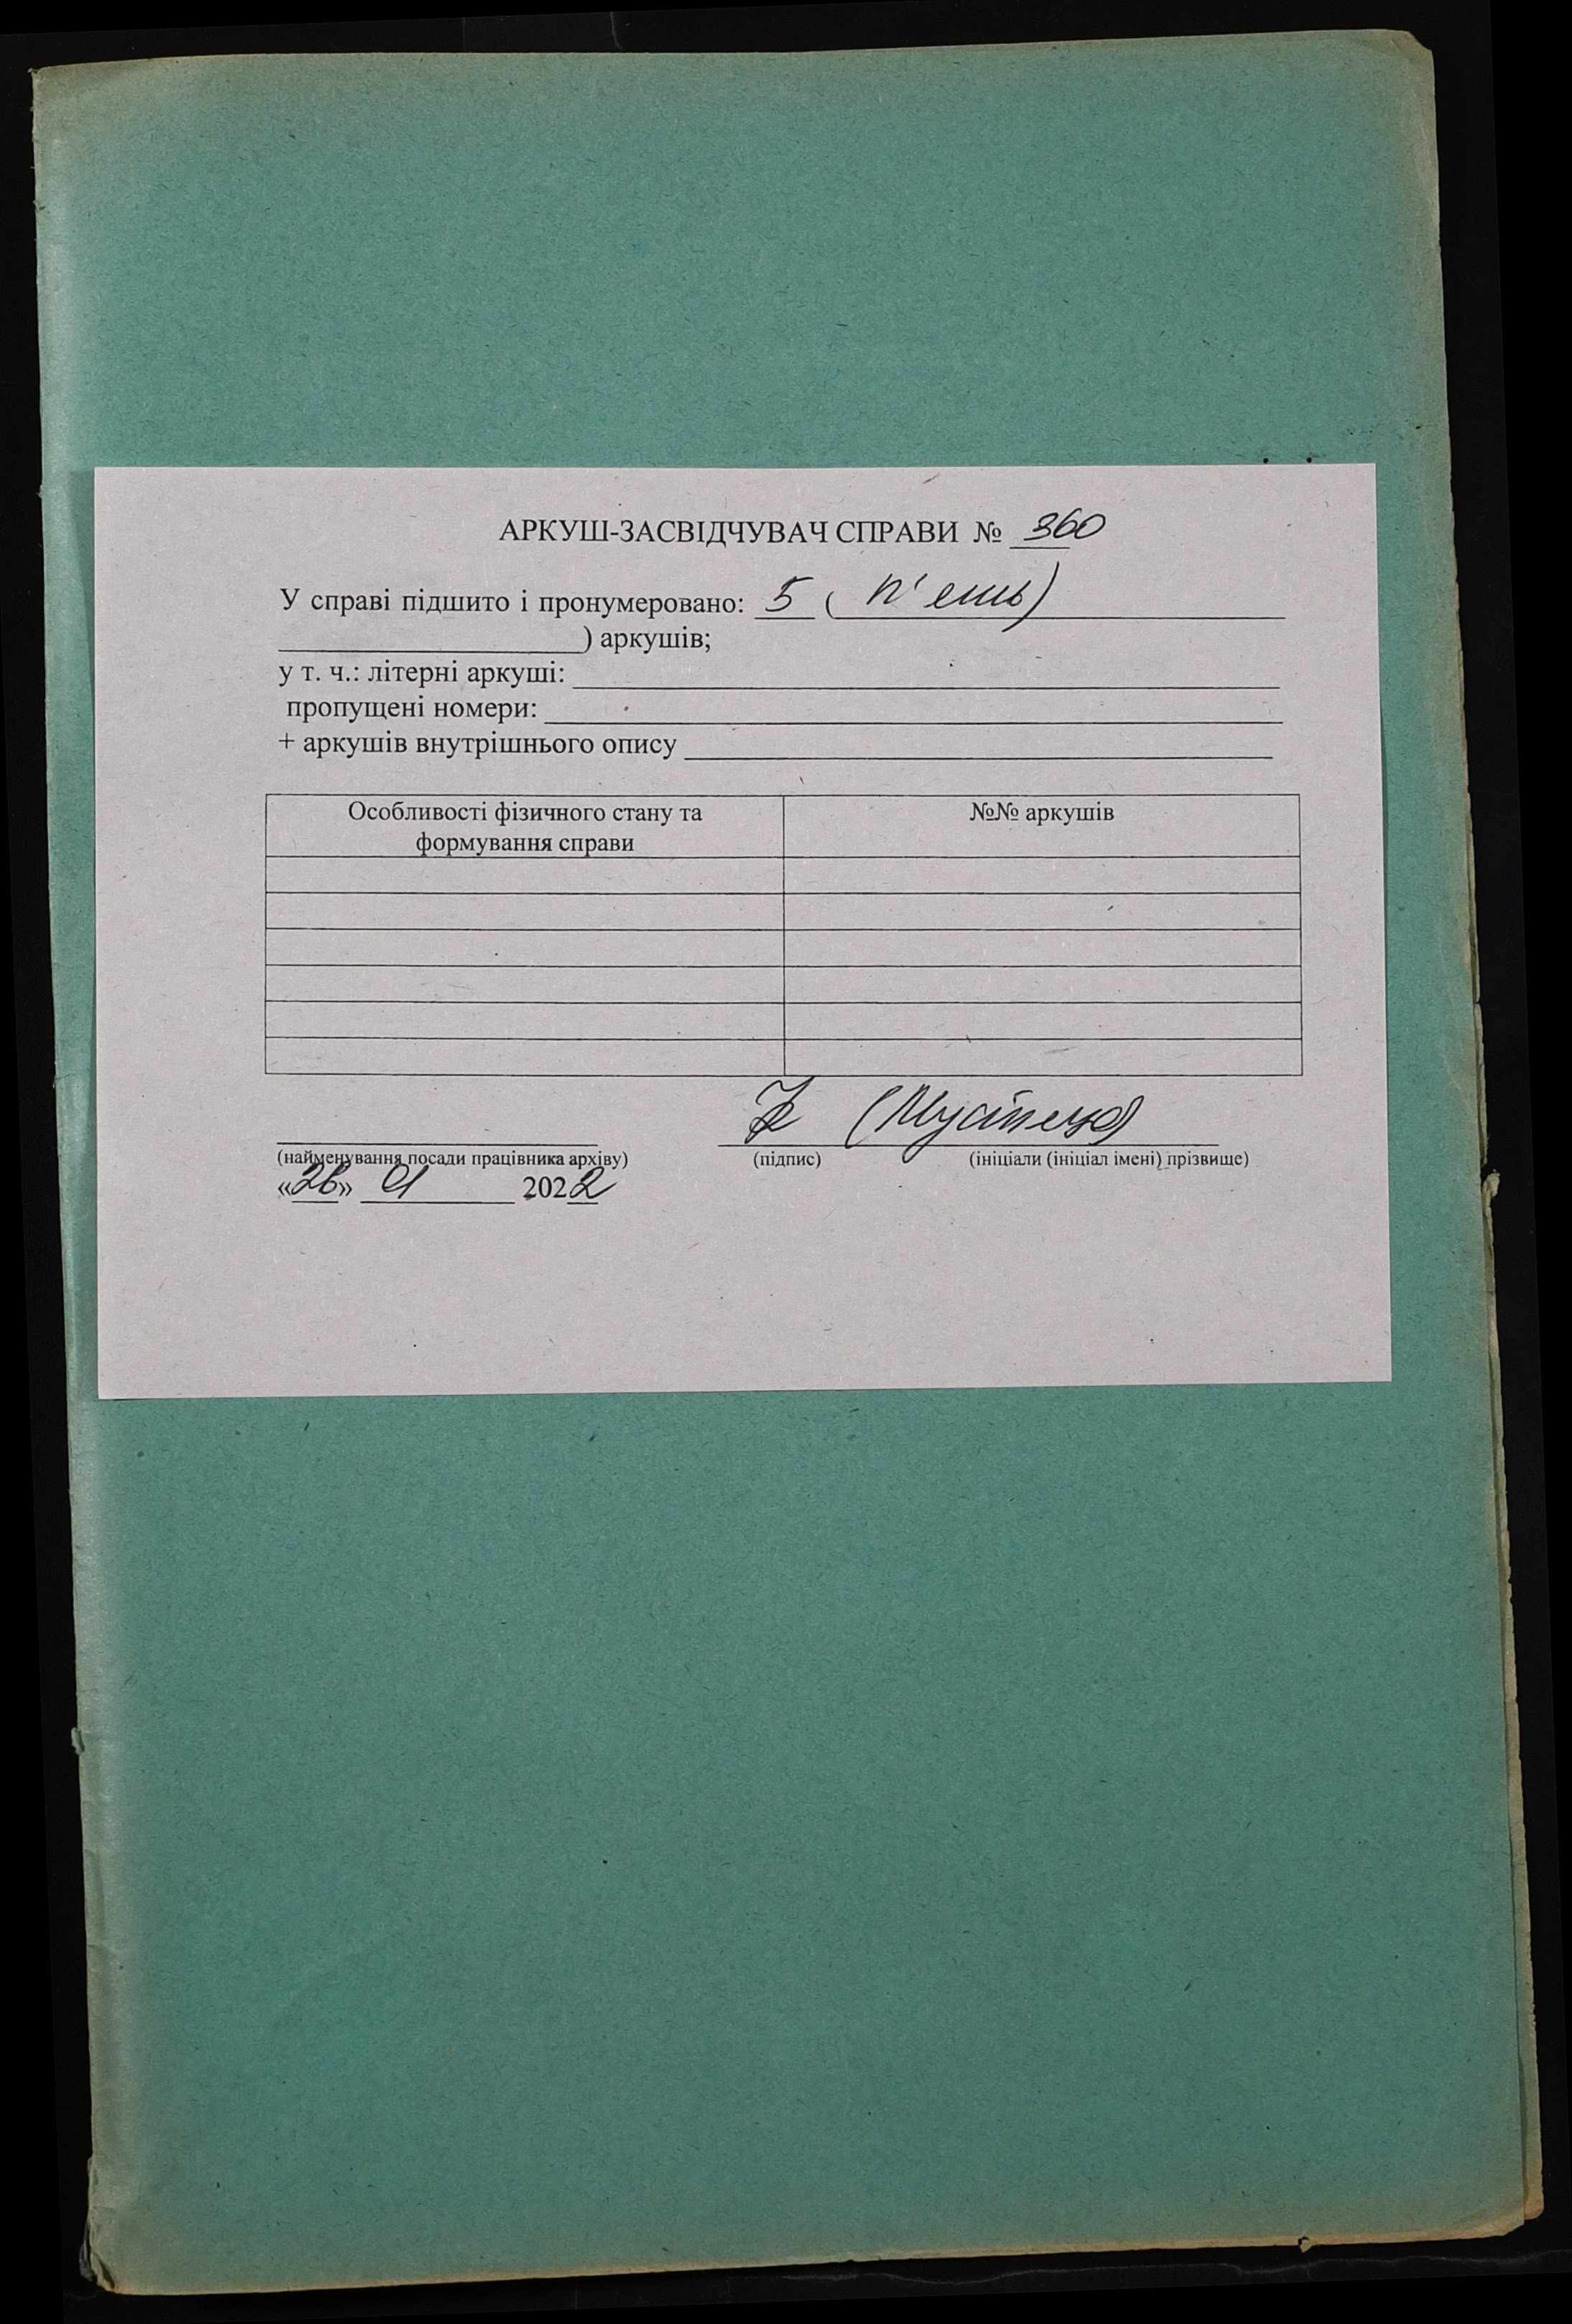 АРКУШ-ЗАСВІДЧУВАЧ СПРАВИ № 360
У справі підшито і пронумеровано: 5 ( п'ять)
) аркушів;
у т. ч.: літерні аркуші:
пропущені номери:
+ аркушів внутрішнього опису
Особливості фізичного стану та формування справи
№№ аркушів
(найменування посади працівника архіву) (підпис) (ініціали (ініціал імені) прізвище)
«26» 01 2022